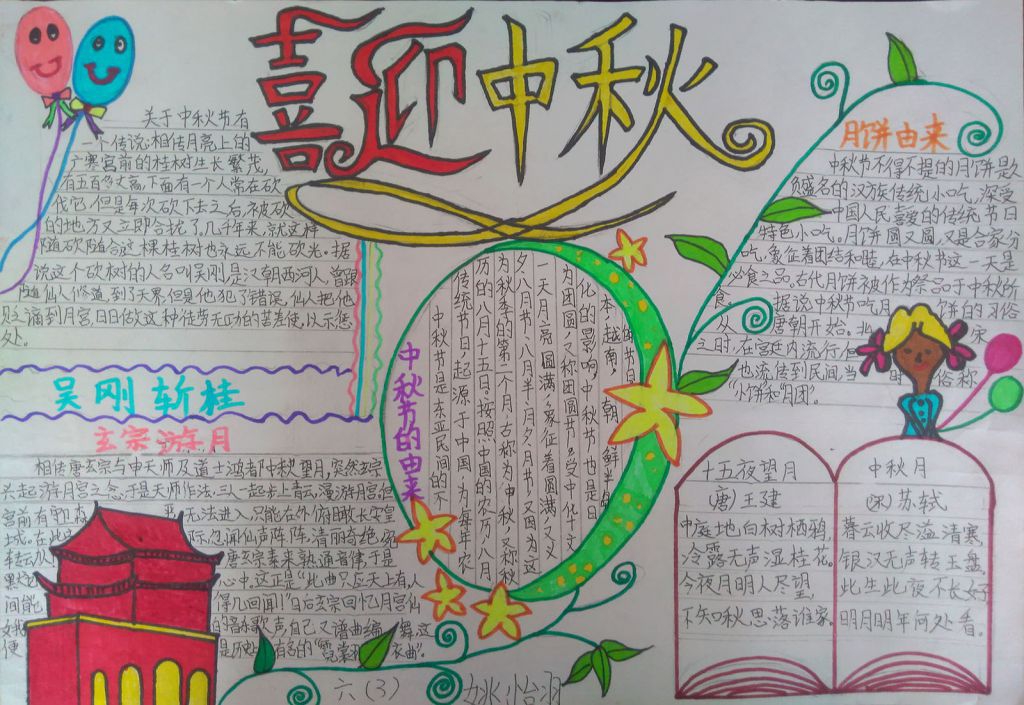 喜迎中秋
关于中秋节有
一个传说:相传月亮上的
广寒宫前的桂树生长繁茂,
有五百多丈高,下面有一个人常在砍
伐它,但是每次砍下去之后,被砍
的地方又立即合拢了,几千年来,就这样
随砍随合,这棵桂树也永远不能砍光。据
说这个砍树的人名叫吴刚,是汉朝西河人,曾跟
随仙人修道,到了天界,但是他犯了错误,仙人把他
贬谪到月宫,日日做这种徒劳无功的苦差使,以示惩
处。
吴刚斩桂
玄宗游月
相传唐玄宗与申天师及道士鸿都中秋望月,突然玄宗
兴起游月宫之念,于是天师作法,三人一起步上青云,漫游月宫,但
宫前有守卫森 无法进入,只能在外俯瞰长安皇
城。在此 际,忽闻仙声阵阵,清丽奇绝,宛
转动人 唐玄宗素来熟通音律,于是
默 心中,这正是“此曲只应天上有,人
间能 得几回闻!”日后玄宗回忆月宫仙
娥 的音乐歌声,自己又谱曲编舞,这
便 是历史上有名的“霓裳羽衣曲”。
中秋节的由来
中秋节是东亚民间的
传统节日,起源于中国,为每年农
历的八月十五日。按照中国的农历,八月
为秋季的第二个月,古称为中秋,又称秋
夕、八月节、八月半、月夕、月节,又因为这
一天月亮圆满,象征着圆满,又义
为团圆,又称团圆节。受中华文
化的影响,中秋节也是日
本、越南、朝鲜半岛
月饼由来
中秋节不得不提的月饼是久
负盛名的汉族传统小吃,深受
中国人民喜爱的传统节日
特色小吃。月饼圆又圆,又是合家分
吃,象征着团结和睦,在中秋节这一天是
必食之品。古代月饼被作为祭品于中秋所
食。据说中秋节吃月饼的习俗
从唐朝开始。北宋
之时,在宫廷内流行,但
也流传到民间,当时俗称
“小饼”和“月团”。
十五夜望月
(唐)王建
中庭地白树栖鸦,
冷露无声湿桂花。
今夜月明人尽望,
不知秋思落谁家。
中秋月
(宋)苏轼
暮云收尽溢清寒,
银汉无声转玉盘,
此生此夜不长好,
明月明年何处看。
六(3) 姚怡羽